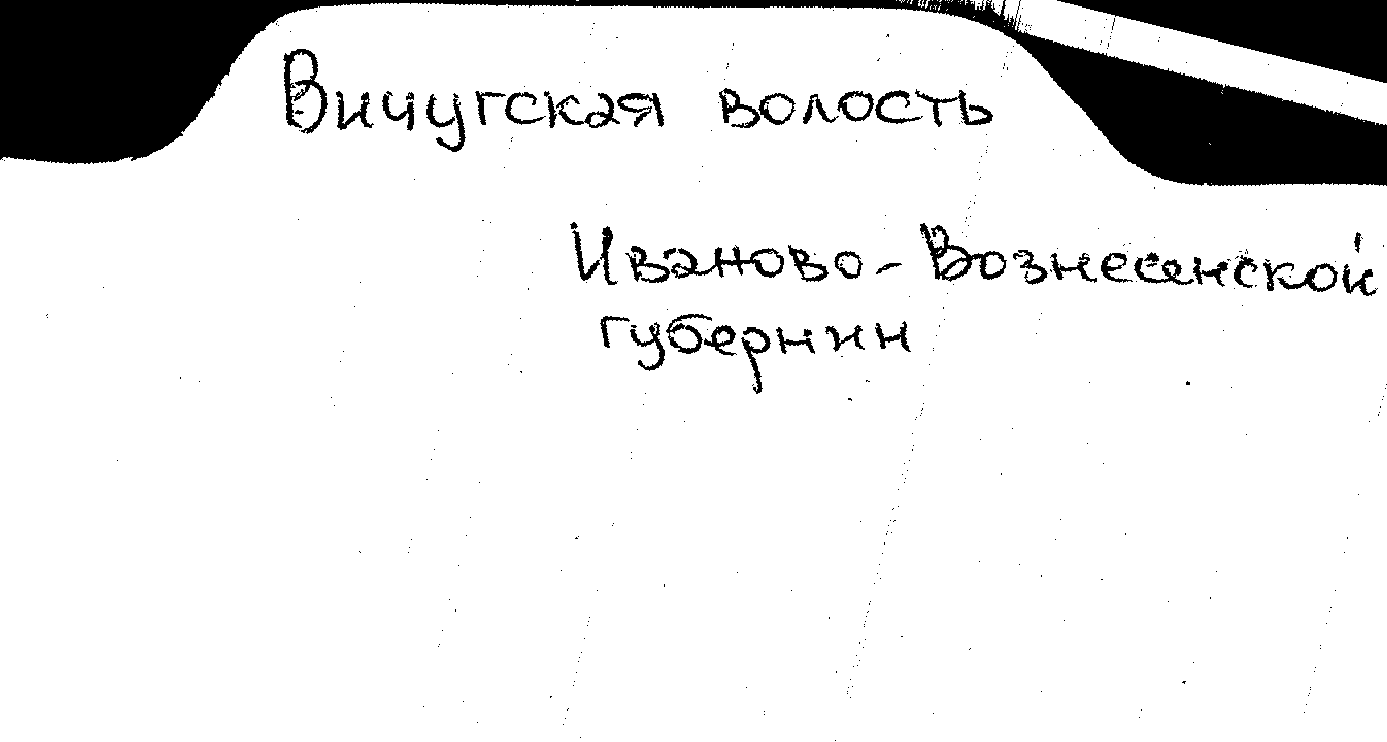 Вичугская волость
Иваново-Вознесенской
губернии